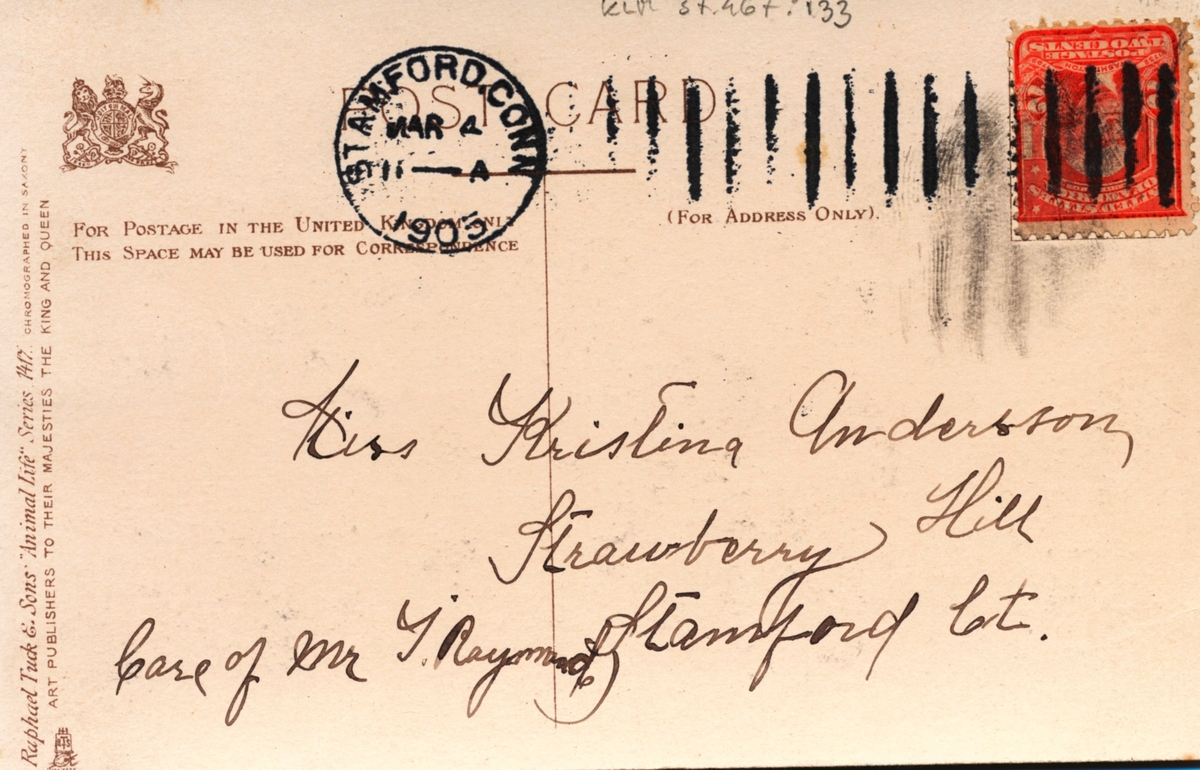 KLM St.46 f. 133
POST CARD
STAMFORD, CONN.
MAR 4
11 — A
1905
FOR POSTAGE IN THE UNITED KINGDOM ONLY
THIS SPACE MAY BE USED FOR CORRESPONDENCE
(FOR ADDRESS ONLY).
Miss Kristina Andersson,
Strawberry Hill
Stamford Ct.
Care of Mr T. Raymond
Raphael Tuck & Sons' "Animal Life" Series 1417. CHROMOGRAPHED IN SAXONY
ART PUBLISHERS TO THEIR MAJESTIES THE KING AND QUEEN